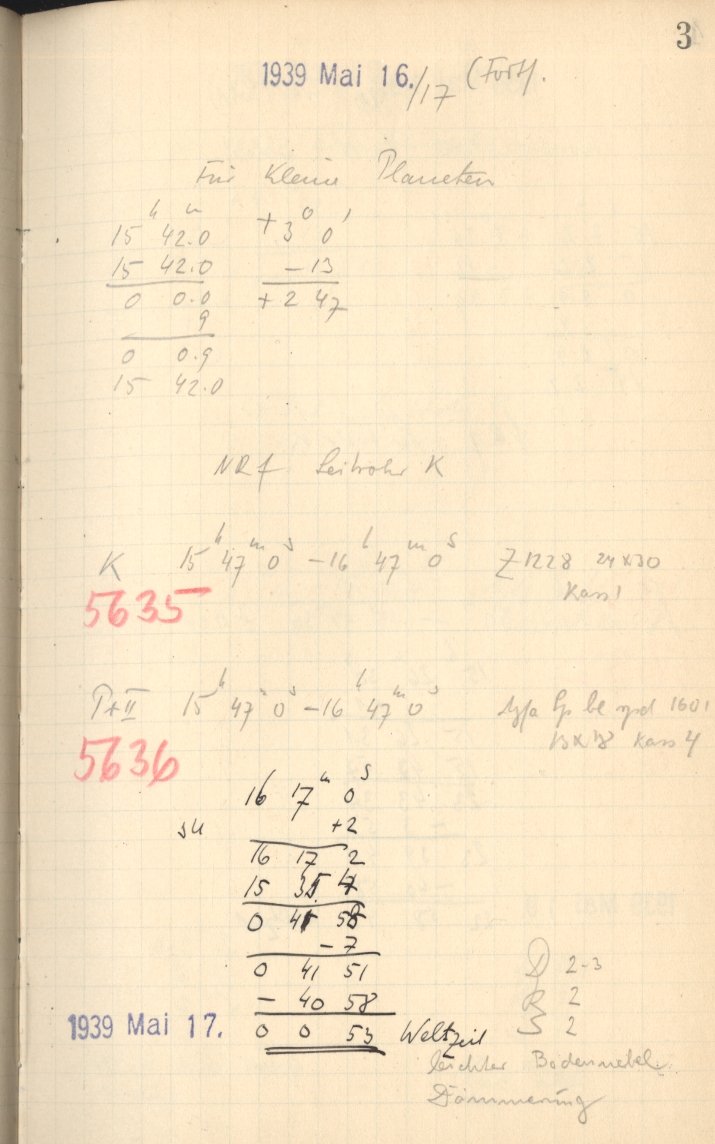 3
1939 Mai 16./17 (Forts.
Für Kleine Planeten
h m
15 42.0 +3° 0'
15 42.0 -13
0 0.0 +2 47
9
0 0.9
15 42.0
NRf Leitrohr K
K 15h 47m 0s - 16h 47m 0s Z 1228 24x30
Kass 1
5635
Pr II 15h 47m 0s - 16h 47m 0s Agfa 1601
13x18 Kass 4
5636
16 17m 0s
SU +2
16 17 2
15 35
0 41 58
- 7
0 41 51
- 40 58
1939 Mai 17. 0 0 53 Weltzeit
D 2-3
R 2
S 2
leichter Bodennebel
Dämmerung